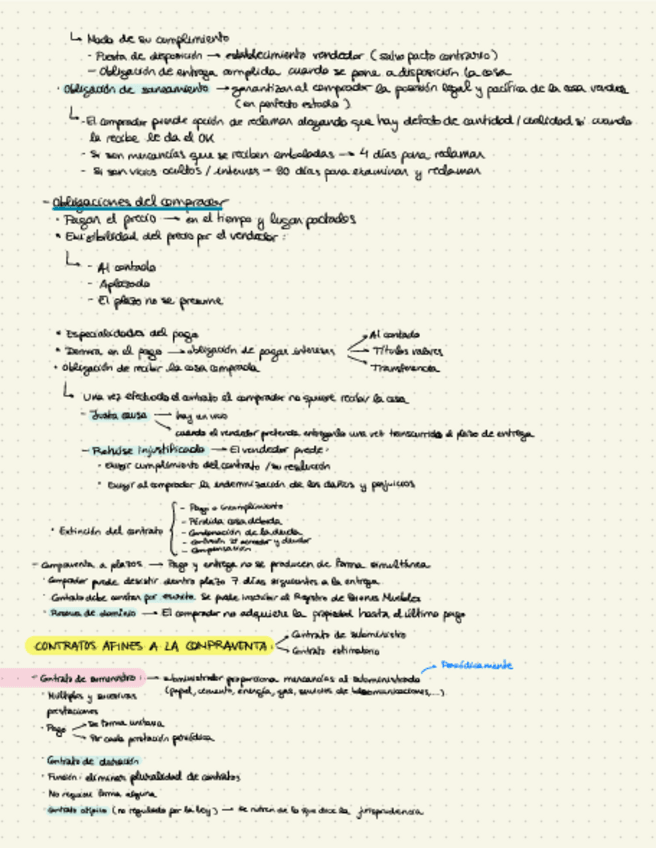 ↳ Modo de su cumplimiento
- Puesta de disposición → establecimiento vendedor (salvo pacto contrario)
- Obligación de entrega cumplida cuando se pone a disposición la cosa
· Obligación de saneamiento → garantizar al comprador la posesión legal y pacífica de la cosa vendida
(en perfecto estado)
↳ - El comprador puede opción de reclamar alegando que hay defecto de cantidad / calidad si cuando
la recibe le da el OK
- Si son mercancías que se reciben embaladas → 4 días para reclamar
- Si son vicios ocultos / internos - 30 días para examinar y reclamar
- Obligaciones del comprador
· Pagar el precio → en el tiempo y lugar pactados
· Exigibilidad del precio por el vendedor:
↳ - Al contado
- Aplazado
- El plazo no se presume
· Especialidades del pago
· Demora en el pago → obligación de pagar intereses
→ Al contado
→ Títulos valores
→ Transferencia
· Obligación de recibir la cosa comprada
↳ Una vez efectuado el contrato el comprador no quiere recibir la cosa
- Justa causa → hay un vicio
cuando el vendedor pretenda entregarlo una vez transcurrido el plazo de entrega
- Rehúse injustificado → El vendedor puede:
· Exigir cumplimiento del contrato / su resolución
· Exigir al comprador la indemnización de los daños y perjuicios
· Extinción del contrato
- Pago o incumplimiento
- Pérdida cosa debida
- Condonación de la deuda
- Confusión acreedor y deudor
- Compensación
- Compraventa a plazos → Pago y entrega no se producen de forma simultánea
· Comprador puede desistir dentro plazo 7 días siguientes a la entrega
· Contrato debe constar por escrito. Se puede inscribir al Registro de Bienes Muebles
· Reserva de dominio → El comprador no adquiere la propiedad hasta el último pago
CONTRATOS AFINES A LA COMPRAVENTA:
→ Contrato de suministro
→ Contrato estimatorio
- Contrato de suministro: → suministrador proporciona mercancías al suministrado
Periódicamente
(papel, cemento, energía, gas, servicios de telecomunicaciones,...)
· Múltiples y sucesivas
prestaciones
· Pago → De forma unitaria
→ Por cada prestación periódica
· Contrato de duración
· Función: eliminar pluralidad de contratos
· No requiere forma alguna
· Contrato atípico (no regulado por la ley) → se nutren de lo que dice la jurisprudencia